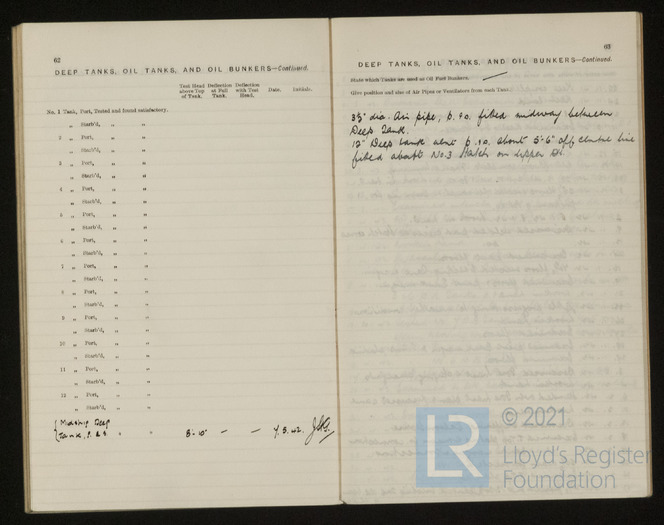 62
DEEP TANKS, OIL TANKS, AND OIL BUNKERS—Continued.
Test Head above Top of Tank. Deflection at Full Tank. Deflection with Test Head. Date. Initials.
No. 1 Tank, Port, Tested and found satisfactory.
„ Starb'd, „ „
2 „ Port, „ „
„ Starb'd, „ „
3 „ Port, „ „
„ Starb'd, „ „
4 „ Port, „ „
„ Starb'd, „ „
5 „ Port, „ „
„ Starb'd, „ „
6 „ Port, „ „
„ Starb'd, „ „
7 „ Port, „ „
„ Starb'd, „ „
8 „ Port, „ „
„ Starb'd, „ „
9 „ Port, „ „
„ Starb'd, „ „
10 „ Port, „ „
„ Starb'd, „ „
11 „ Port, „ „
„ Starb'd, „ „
12 „ Port, „ „
„ Starb'd, „ „
Deep
Tank, P. & S. „ „ 8'-10" – – 9.3.42.
63
DEEP TANKS, OIL TANKS, AND OIL BUNKERS—Continued.
State which Tanks are used as Oil Fuel Bunkers.
Give position and size of Air Pipes or Ventilators from each Tank.
3½" dia. Air pipe, p. & s. fitted midway between
Deep Tank.
12" Deep tank vent p. & s. about 5'-6" off centre line
fitted abaft No. 3 Hatch on Upper Dk.
© 2021
LR
Lloyd's Register
Foundation